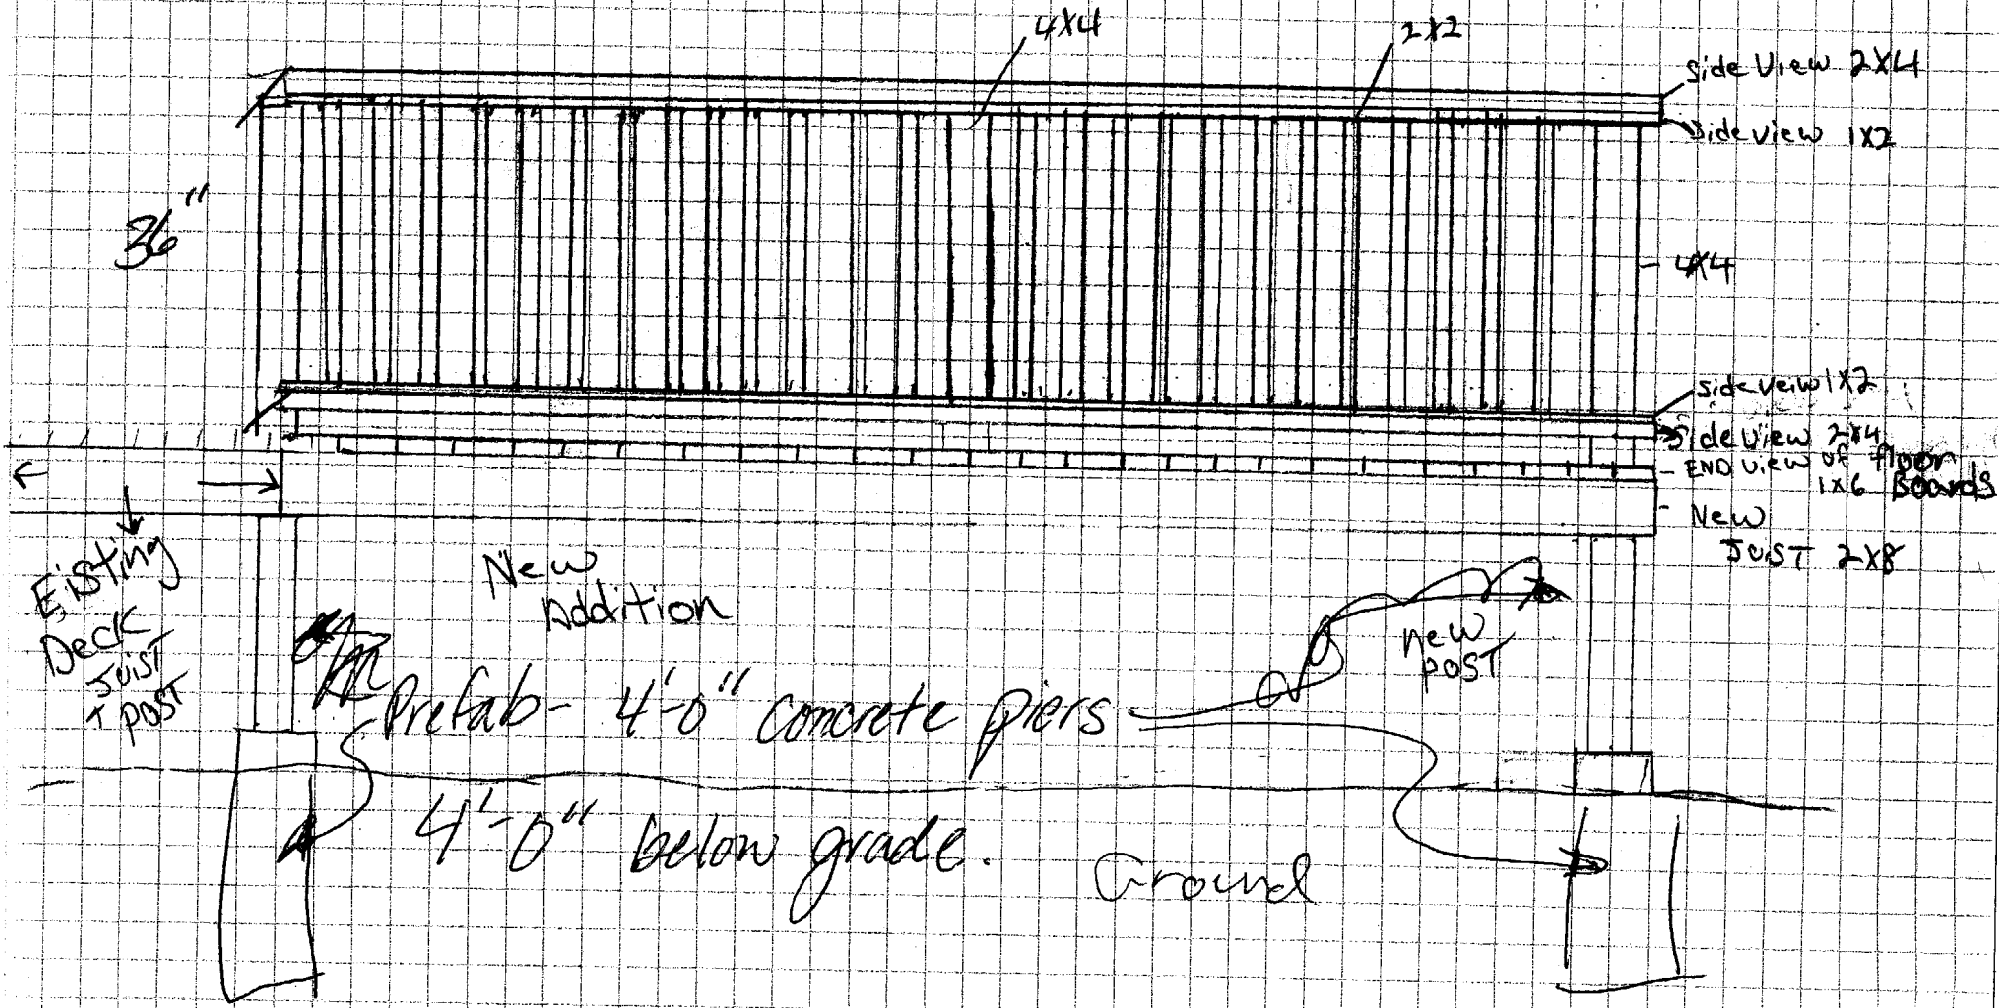 4X4
2X2
side View 2X4
Side view 1X2
36"
4X4
side veiw 1X2
Side view 2X4
END view of floor
1x6 Boards
New
JOIST 2X8
Existing
Deck
JOIST
+ POST
New
Addition
new
POST
Prefab - 4'-0" concrete piers
4'-0" below grade.
Ground